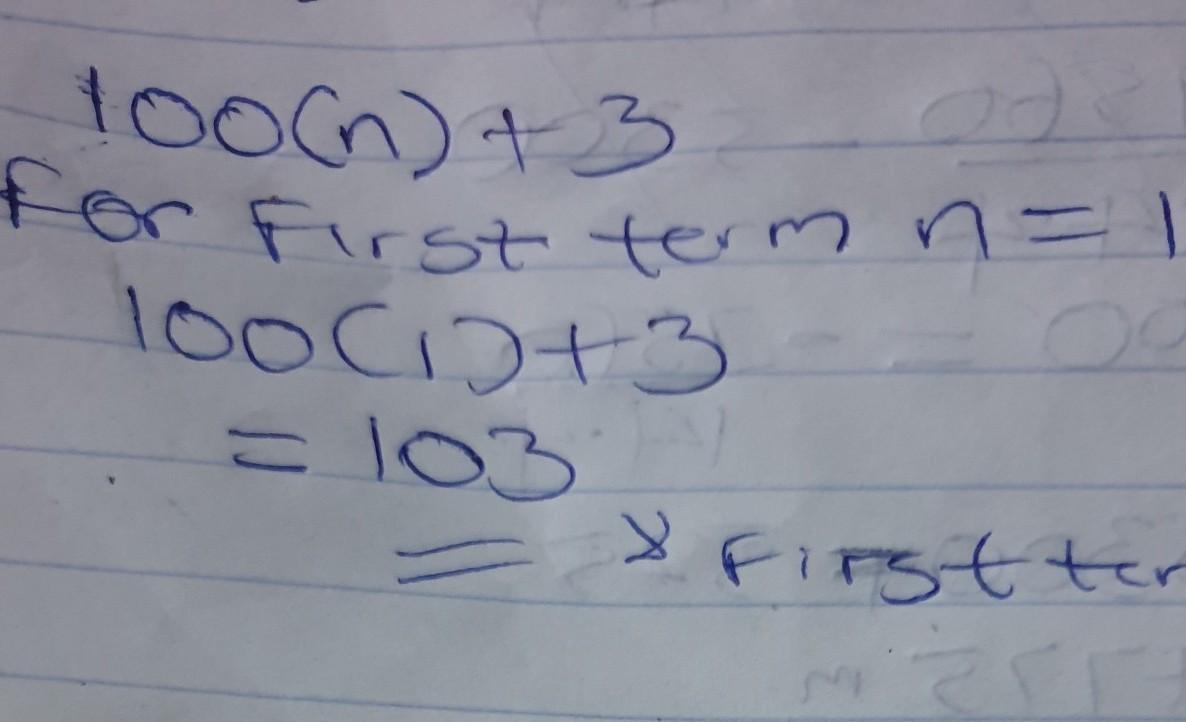 100(n) + 3
for First term n = 1
100(1) + 3
= 103
= * First ter